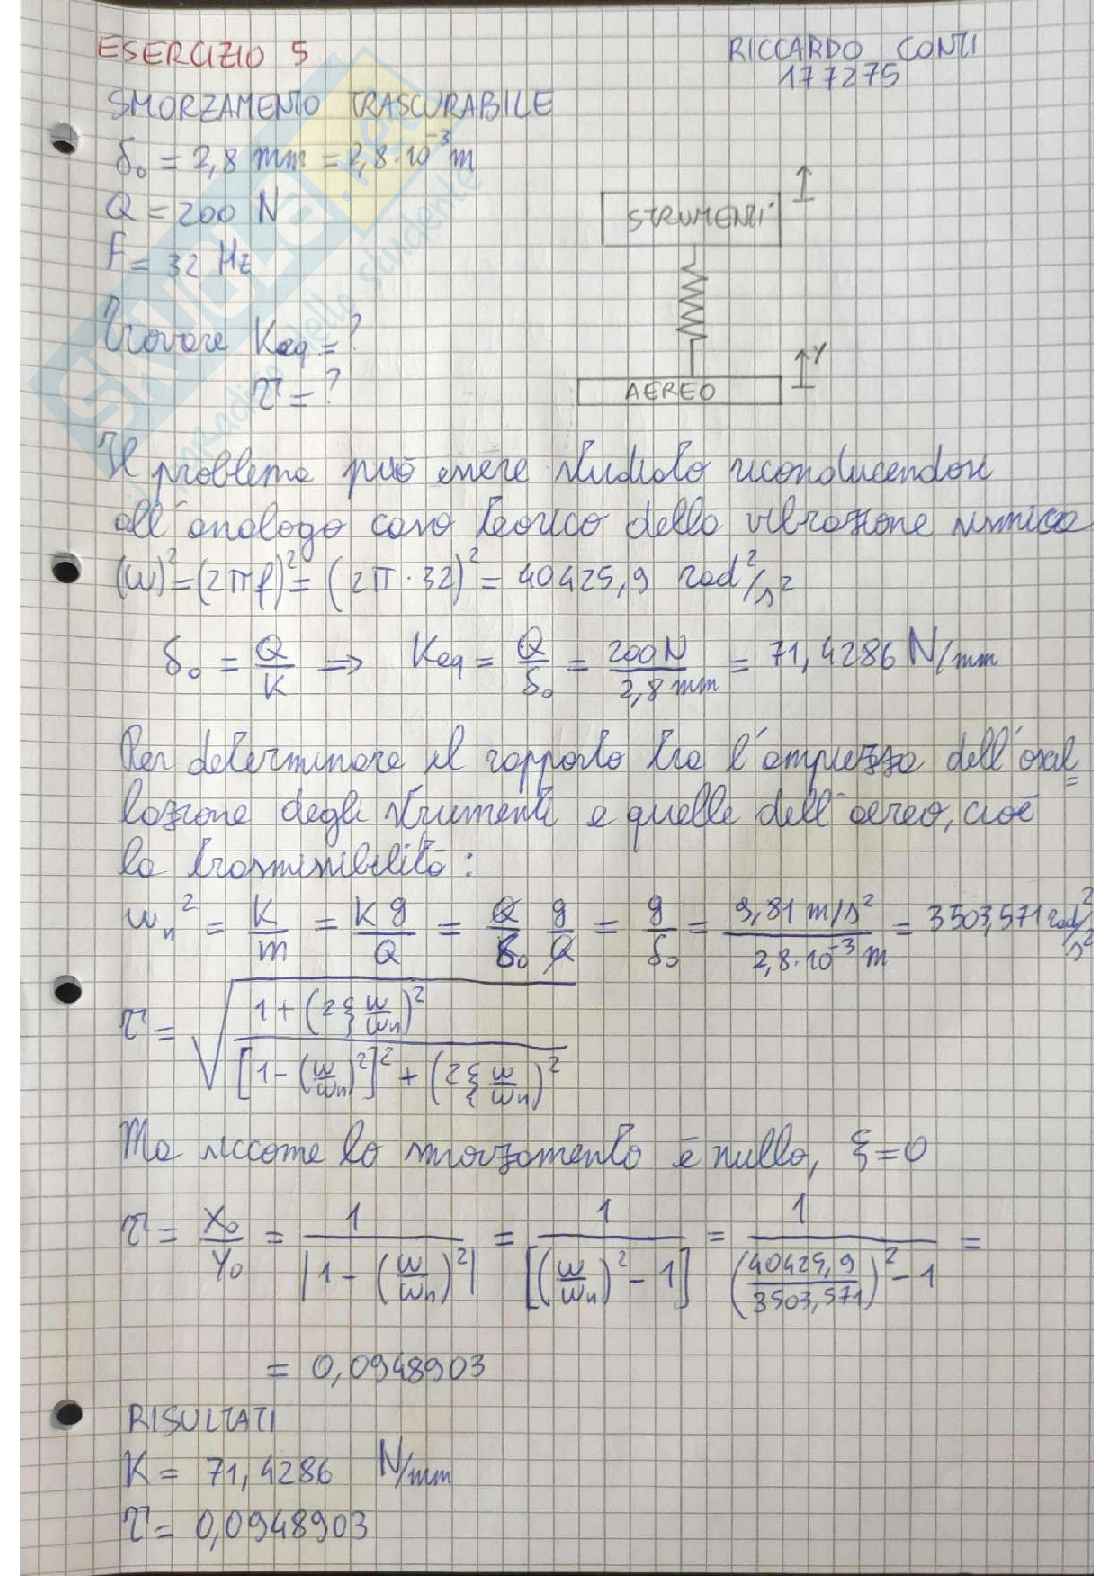 ESERCIZIO 5
RICCARDO CONTI
177275
SMORZAMENTO TRASCURABILE
δ₀ = 2,8 mm = 2,8·10⁻³ m
Q = 200 N
F = 32 Hz
STRUMENTI
Trovare Keq = ?
Y
τ = ?
AEREO
Il problema può essere studiato riconducendosi
all'analogo caso teorico della vibrazione sismica
(ω)² = (2πf)² = (2π·32)² = 40425,9 rad²/s²
δ₀ = Q/K ⟹ Keq = Q/δ₀ = 200 N/2,8 mm = 71,4286 N/mm
Per determinare il rapporto tra l'ampiezza dell'oscil=
lazione degli strumenti e quelle dell'aereo, cioè
la trasmissibilità:
ωₙ² = K/m = K g/Q = Q/δ₀ g/Q = g/δ₀ = 9,81 m/s²/2,8·10⁻³ m = 3503,571 rad²/s²
τ = √(1 + (2ξ ω/ωₙ)² / [1 - (ω/ωₙ)²]² + (2ξ ω/ωₙ)²)
Ma siccome lo smorzamento è nullo, ξ = 0
τ = X₀/Y₀ = 1/|1 - (ω/ωₙ)²| = 1/[(ω/ωₙ)² - 1] = 1/(40425,9/3503,571)² - 1 =
= 0,0948903
RISULTATI
K = 71,4286 N/mm
τ = 0,0948903